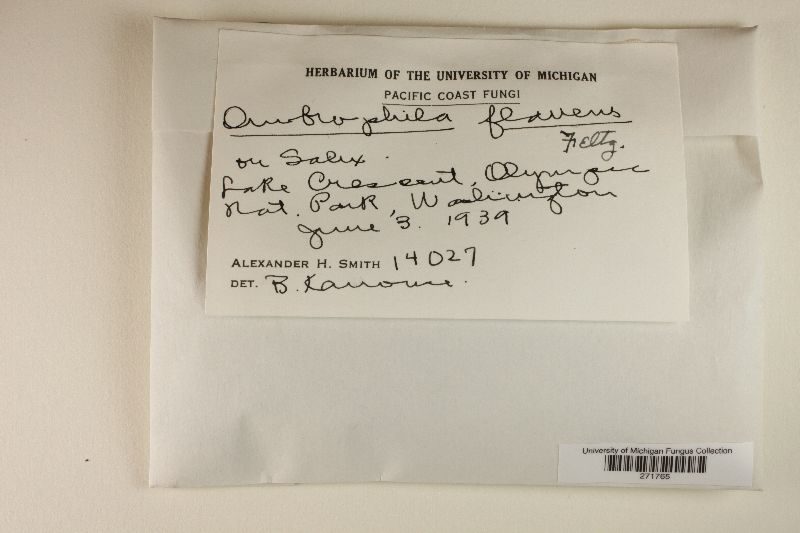 HERBARIUM OF THE UNIVERSITY OF MICHIGAN
PACIFIC COAST FUNGI
Ombrophila flavens
Feltg.
on Salix.
Lake Crescent, Olympic
Nat. Park, Washington
June 3, 1939
ALEXANDER H. SMITH 14027
DET. B. Kanouse.
University of Michigan Fungus Collection
271765